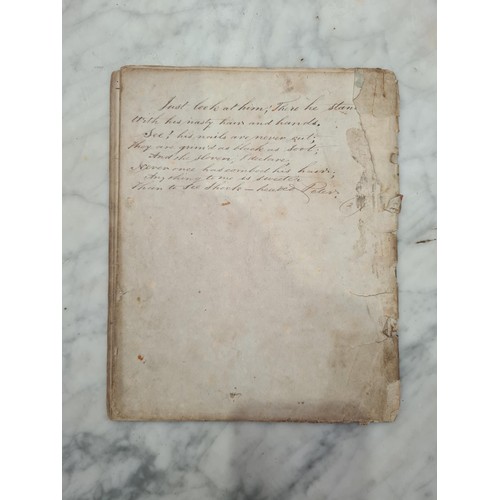 Just look at him; There he stan
With his nasty hair and hands.
See! his nails are never cut;
They are grim'd as black as Soot;
And the sloven, I declare,
Never once has combed his hair;
Any thing to me is sweeter
Than to See Shock-headed Peter.